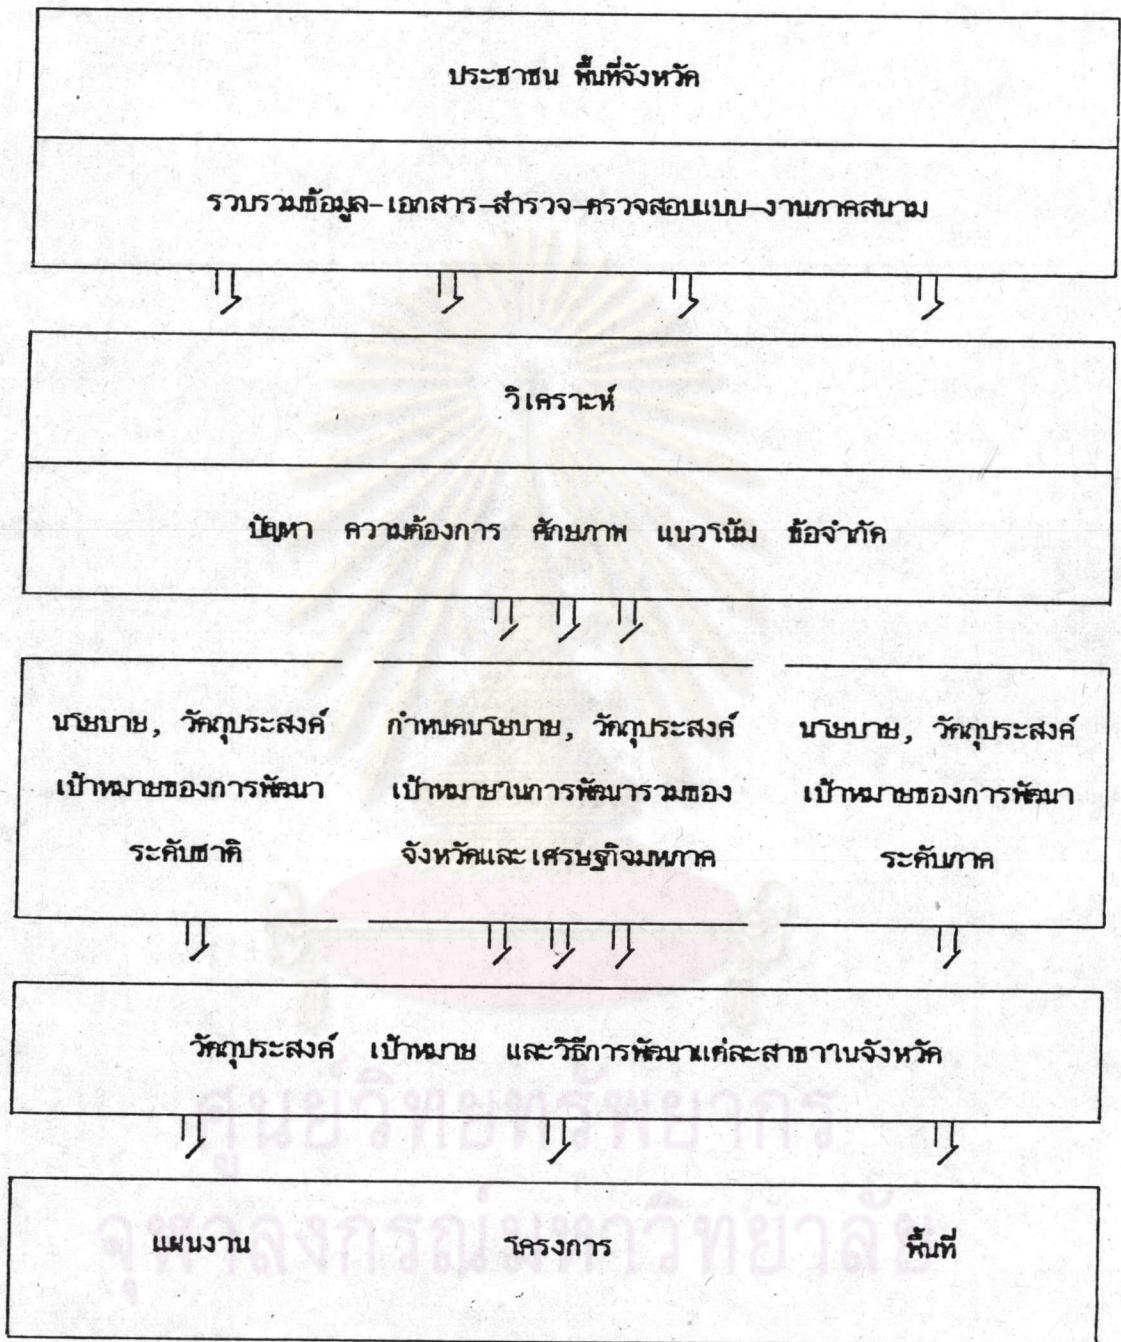 ประชาชน พื้นที่จังหวัด
รวบรวมข้อมูล-เอกสาร-สำรวจ-ตรวจสอบแบบ-งานภาคสนาม
วิเคราะห์
ปัญหา ความต้องการ ศักยภาพ แนวโน้ม ข้อจำกัด
นโยบาย, วัตถุประสงค์
เป้าหมายของการพัฒนา
ระดับชาติ
กำหนดนโยบาย, วัตถุประสงค์
เป้าหมายในการพัฒนารวมของ
จังหวัดและเศรษฐกิจมหภาค
นโยบาย, วัตถุประสงค์
เป้าหมายของการพัฒนา
ระดับภาค
วัตถุประสงค์ เป้าหมาย และวิธีการพัฒนาแต่ละสาขาในจังหวัด
แผนงาน โครงการ พื้นที่
ศูนย์วิทยทรัพยากร
จุฬาลงกรณ์มหาวิทยาลัย